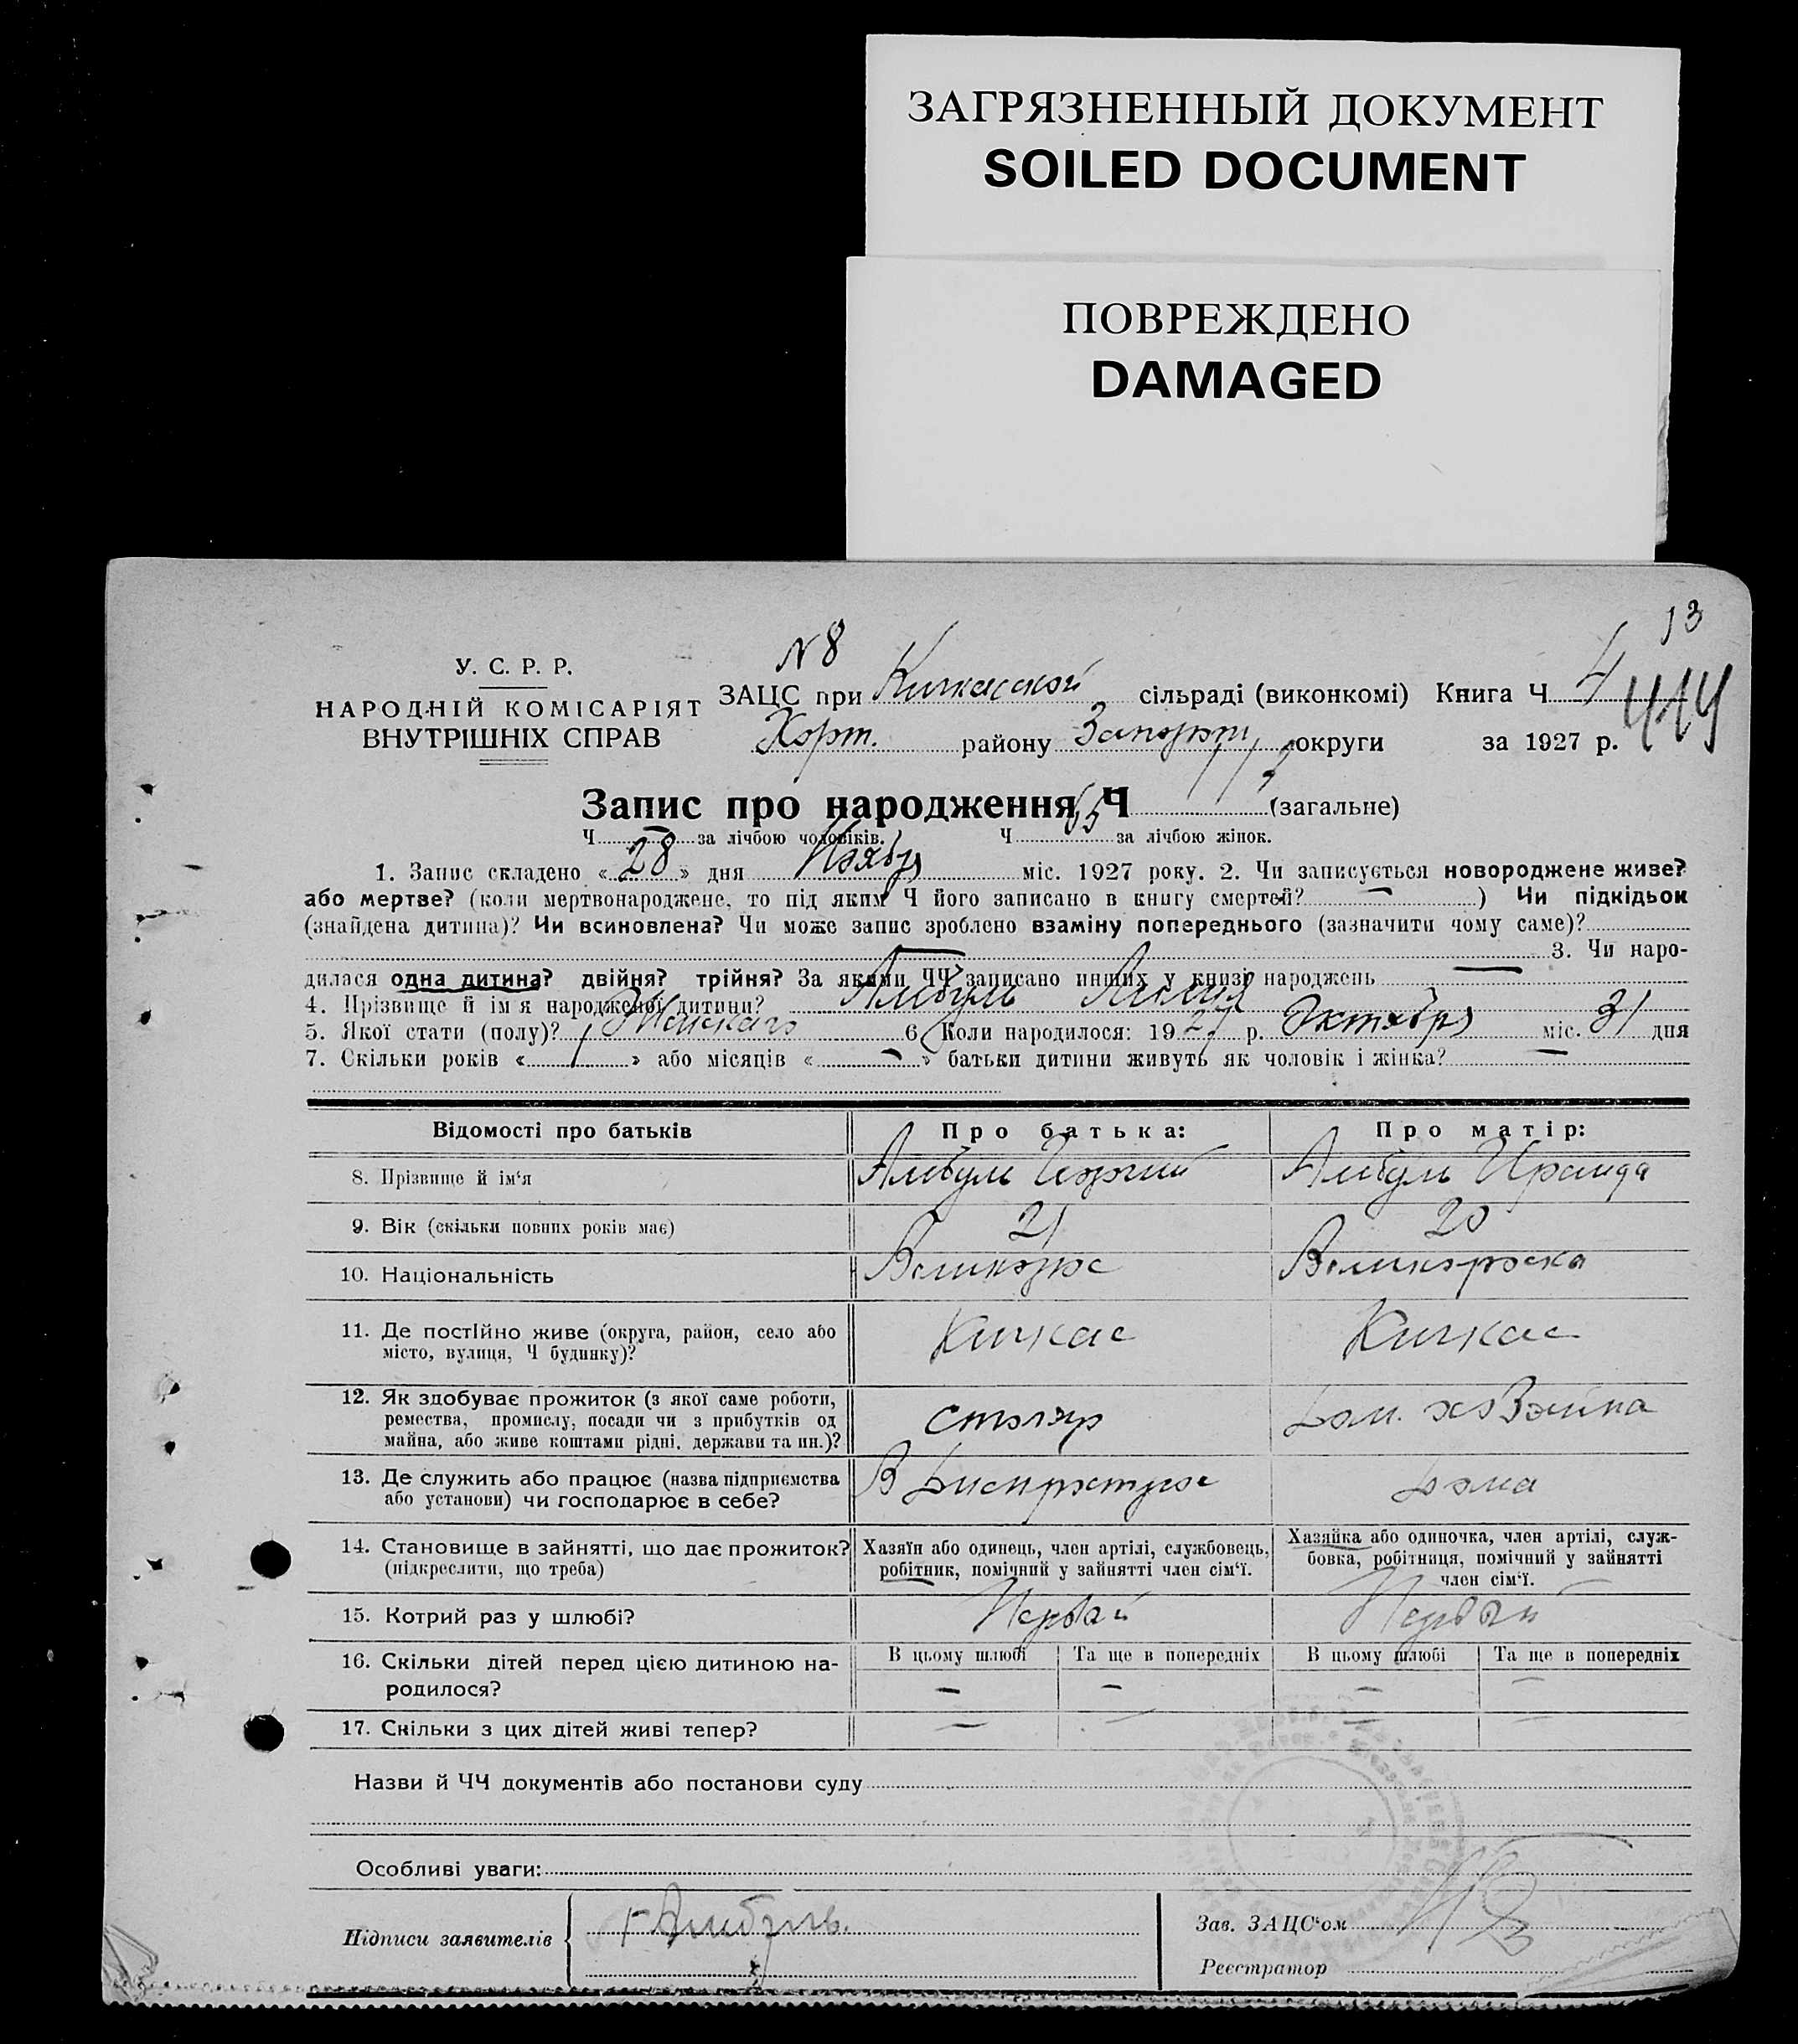 ЗАГРЯЗНЕННЫЙ ДОКУМЕНТ
SOILED DOCUMENT
ПОВРЕЖДЕНО
DAMAGED
13
N 8
У. С. Р. Р.
НАРОДНІЙ КОМІСАРІЯТ
ВНУТРІШНІХ СПРАВ
ЗАЦС при Кичкасской сільраді (виконкомі) Книга Ч 4
Хорт. району округи за 1927 р.
Запис про народження Ч (загальне)
Ч — за лічбою чоловіків. Ч 65 за лічбою жінок.
1. Запис складено «28» дня Ноября міс. 1927 року. 2. Чи записується новороджене живе?
або мертве? (коли мертвонароджене, то під яким Ч його записано в книгу смертей? — ) Чи підкідьок
(знайдена дитина)? Чи всиновлена? Чи може запис зроблено взаміну попереднього (зазначити чому саме)?
— 3. Чи наро-
дилася одна дитина? двійня? трійня? За якими ЧЧ записано инших у книзі народжень —
4. Прізвище й ім'я народженої дитини? Амбуль
5. Якої стати (полу)? Женскаго 6. Коли народилося: 1927 р. Октября міс. 31 дня
7. Скільки років « 1 » або місяців « — » батьки дитини живуть як чоловік і жінка? —
Відомості про батьків
Про батька:
Про матір:
8. Прізвище й ім'я
Амбуль Георгий
Амбуль Ираида
9. Вік (скільки повних років має)
21
20
10. Національність
Великорос
Великороска
11. Де постійно живе (округа, район, село або
місто, вулиця, Ч будинку)?
Кичкас
Кичкас
12. Як здобуває прожиток (з якої саме роботи,
ремества, промислу, посади чи з прибутків од
майна, або живе коштами рідні, держави та ин.)?
столяр
Дом. хозяйка
13. Де служить або працює (назва підприємства
або установи) чи господарює в себе?
В Днепрострое
Дома
14. Становище в зайнятті, що дає прожиток?
(підкреслити, що треба)
Хазяїн або одинець, член артілі, службовець,
робітник, помічний у зайнятті член сім'ї.
Хазяйка або одиночка, член артілі, служ-
бовка, робітниця, помічний у зайнятті
член сім'ї.
15. Котрий раз у шлюбі?
Первый
Первый
16. Скільки дітей перед цією дитиною на-
родилося?
В цьому шлюбі
Та ще в попередніх
В цьому шлюбі
Та ще в попередніх
— — — —
17. Скільки з цих дітей живі тепер?
— — — —
Назви й ЧЧ документів або постанови суду
Особливі уваги:
Підписи заявителів
Г Амбуль.
Зав. ЗАЦС'ом
Реєстратор